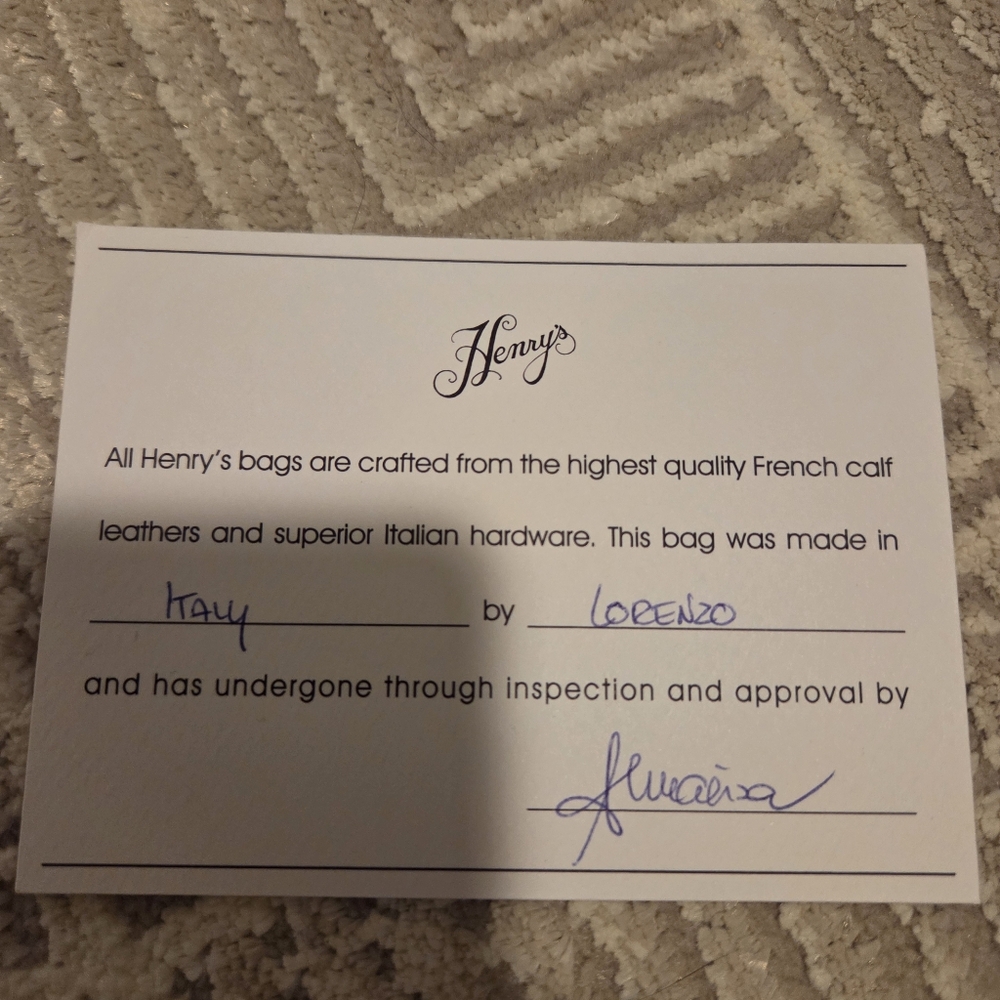 Henry's
All Henry's bags are crafted from the highest quality French calf
leathers and superior Italian hardware. This bag was made in
ITALY by LORENZO
and has undergone through inspection and approval by